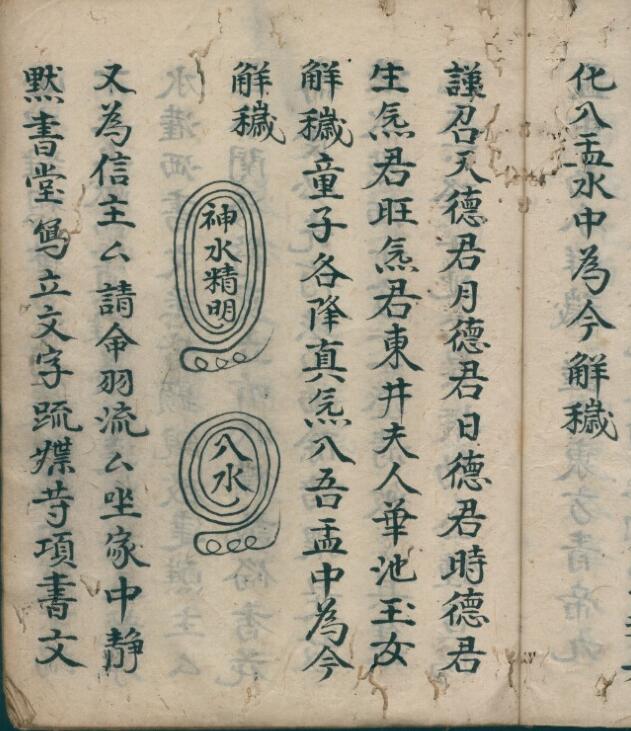 化入盂水中為今解穢
謹召天德君月德君日德君時德君
生炁君旺炁君東井夫人華池玉女
解穢童子各降真炁入吾盂中為今
解穢
神水精明
入水
又為信主厶請命羽流厶坐家中靜
黙書堂寫立文字䟽牒䓁項書文